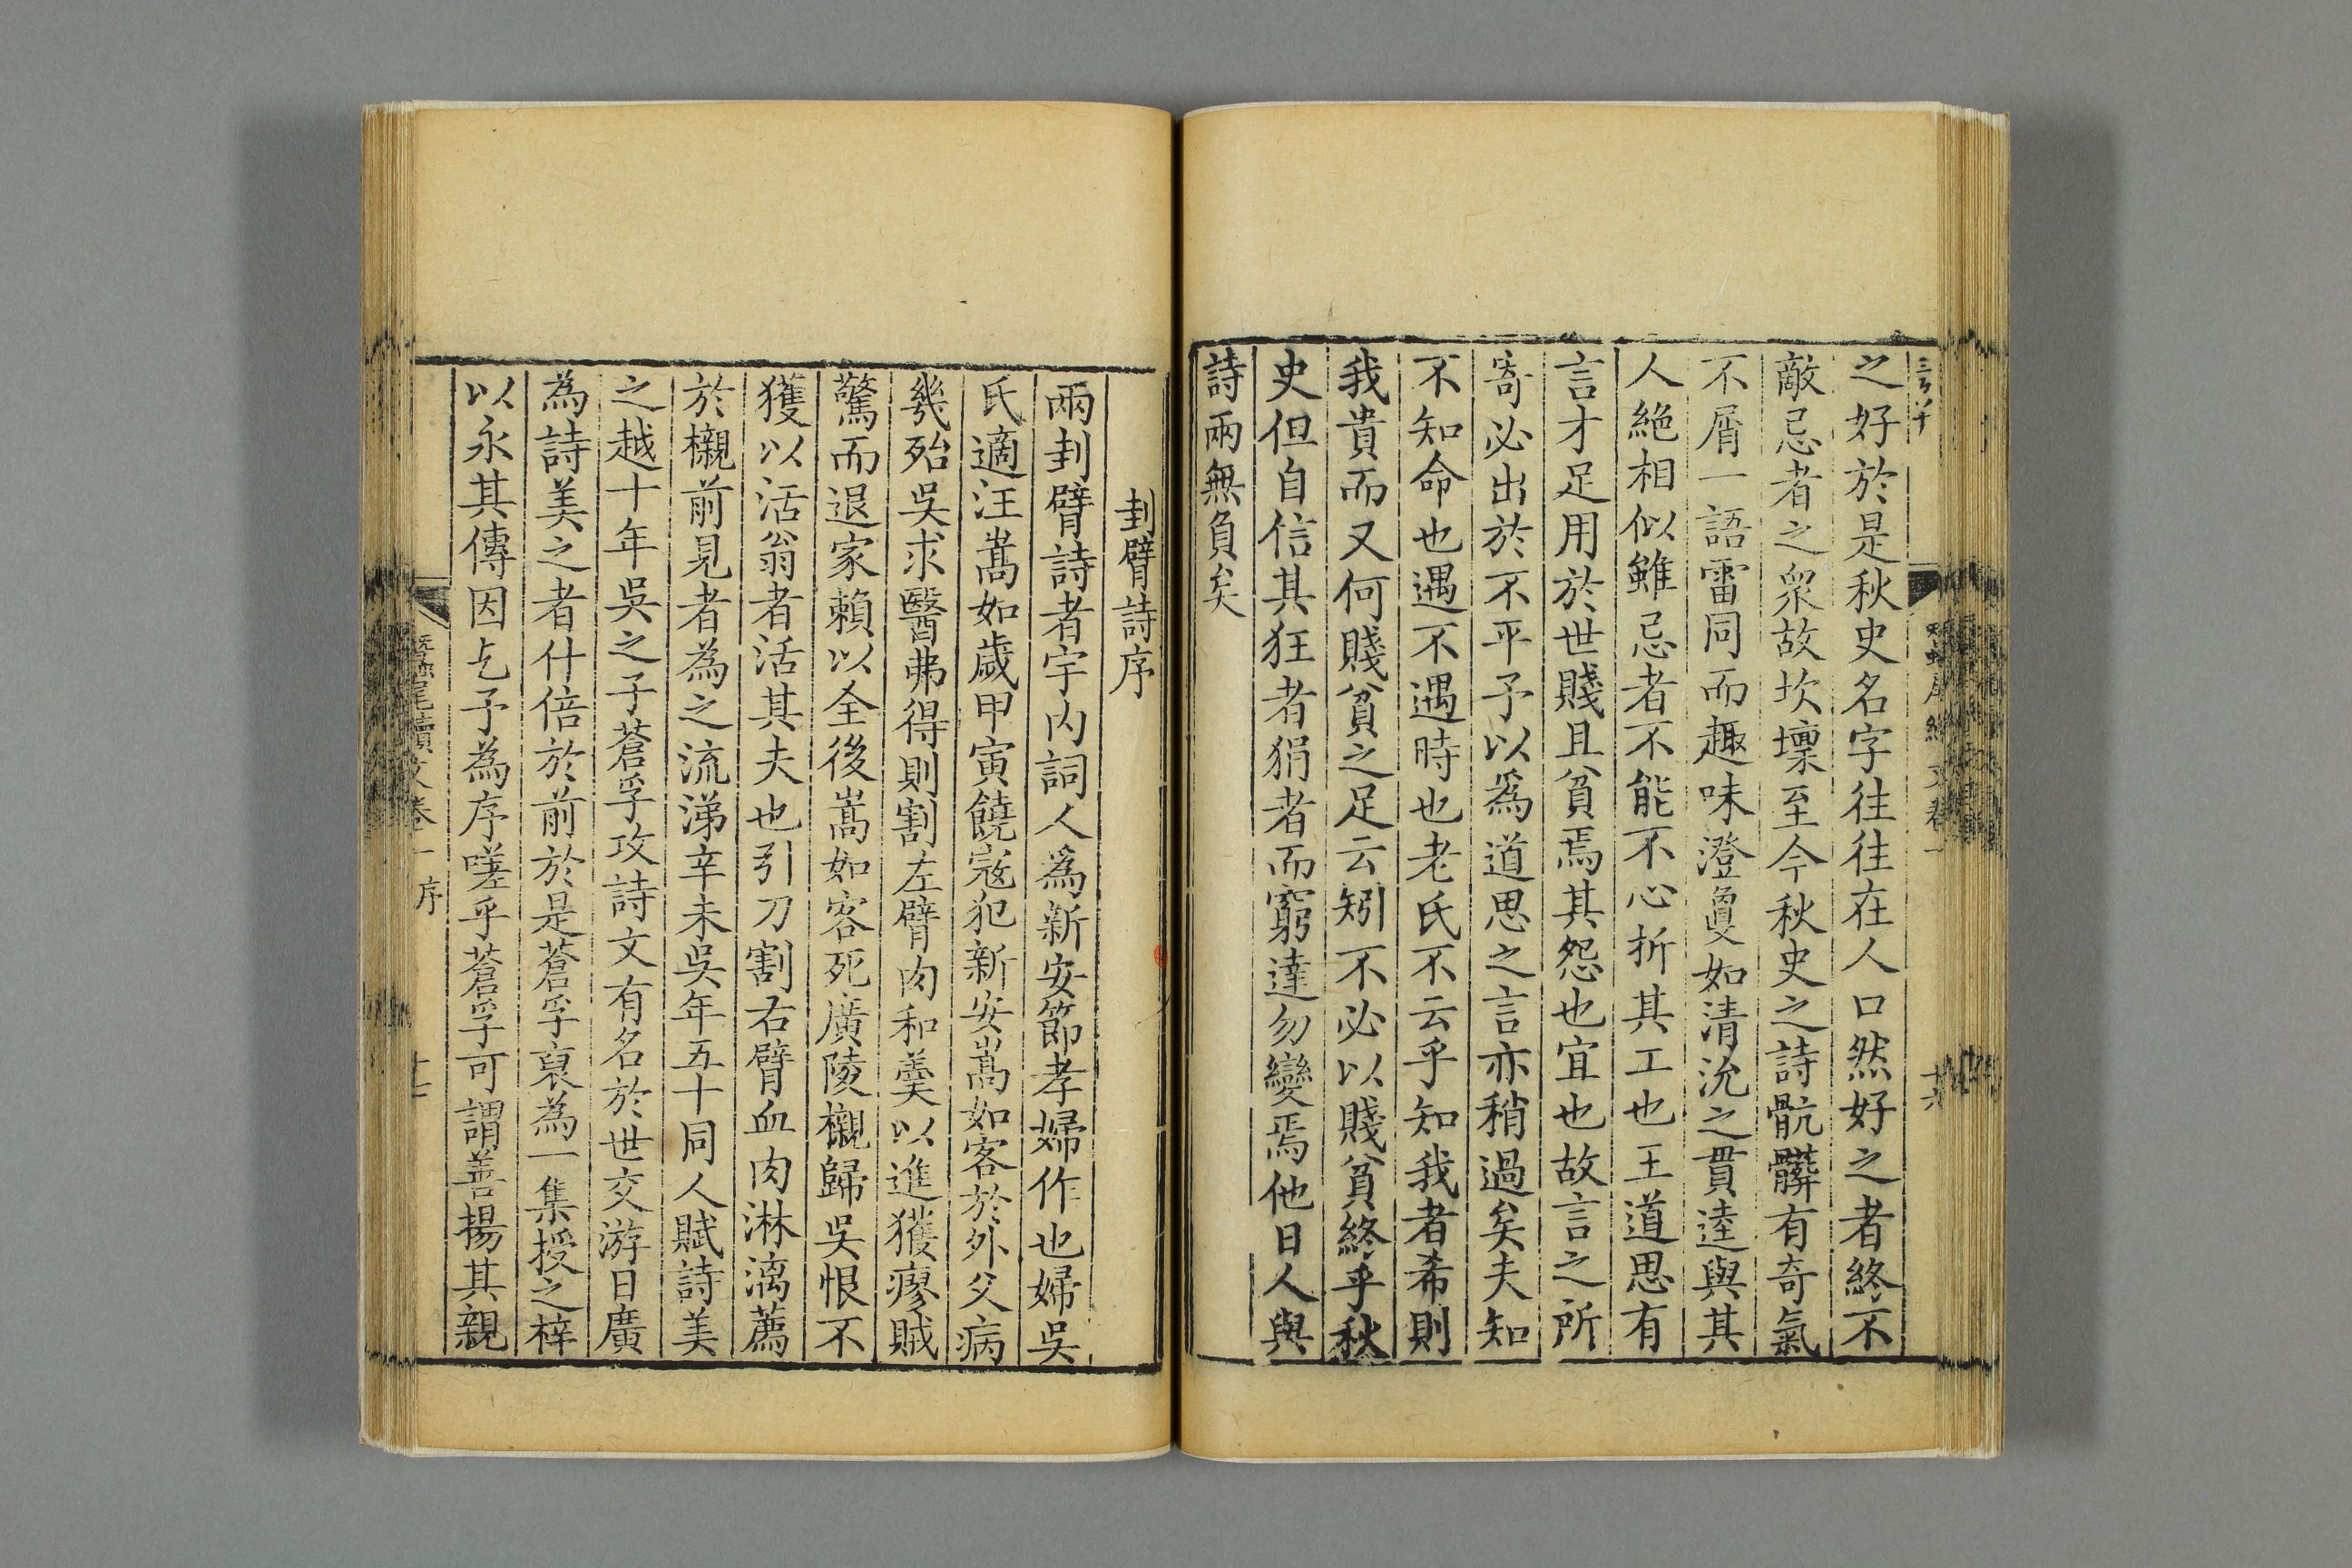 之好於是秋史名字往往在人口然好之者終不
敵忌者之眾故坎壈至今秋史之詩骯髒有奇氣
不屑一語雷同而趣味澄夐如清沇之貫逵與其
人絶相似雖忌者不能不心折其工也王道思有
言才足用於世賤且貧焉其怨也宜也故言之所
寄必出於不平予以為道思之言亦稍過矣夫知
不知命也遇不遇時也老氏不云乎知我者希則
我貴而又何賤貧之足云矧不必以賤貧終乎秋
史但自信其狂者狷者而窮達勿變焉他日人與
詩兩無負矣
十六
刲臂詩序
兩刲臂詩者宇内詞人爲新安節孝婦作也婦吳
氏適汪嵩如歲甲寅饒寇犯新安嵩如客於外父病
幾殆吳求醫弗得則割左臂肉和羹以進獲瘳賊
驚而退家賴以全後嵩如客死廣陵櫬歸吳恨不
獲以活翁者活其夫也引刀割右臂血肉淋漓薦
於櫬前見者為之流涕辛未吳年五十同人賦詩美
之越十年吳之子蒼孚攻詩文有名於世交游日廣
為詩美之者什倍於前於是蒼孚裒為一集授之梓
以永其傳因乞予為序嗟乎蒼孚可謂善揚其親
蠶尾續文卷一 序